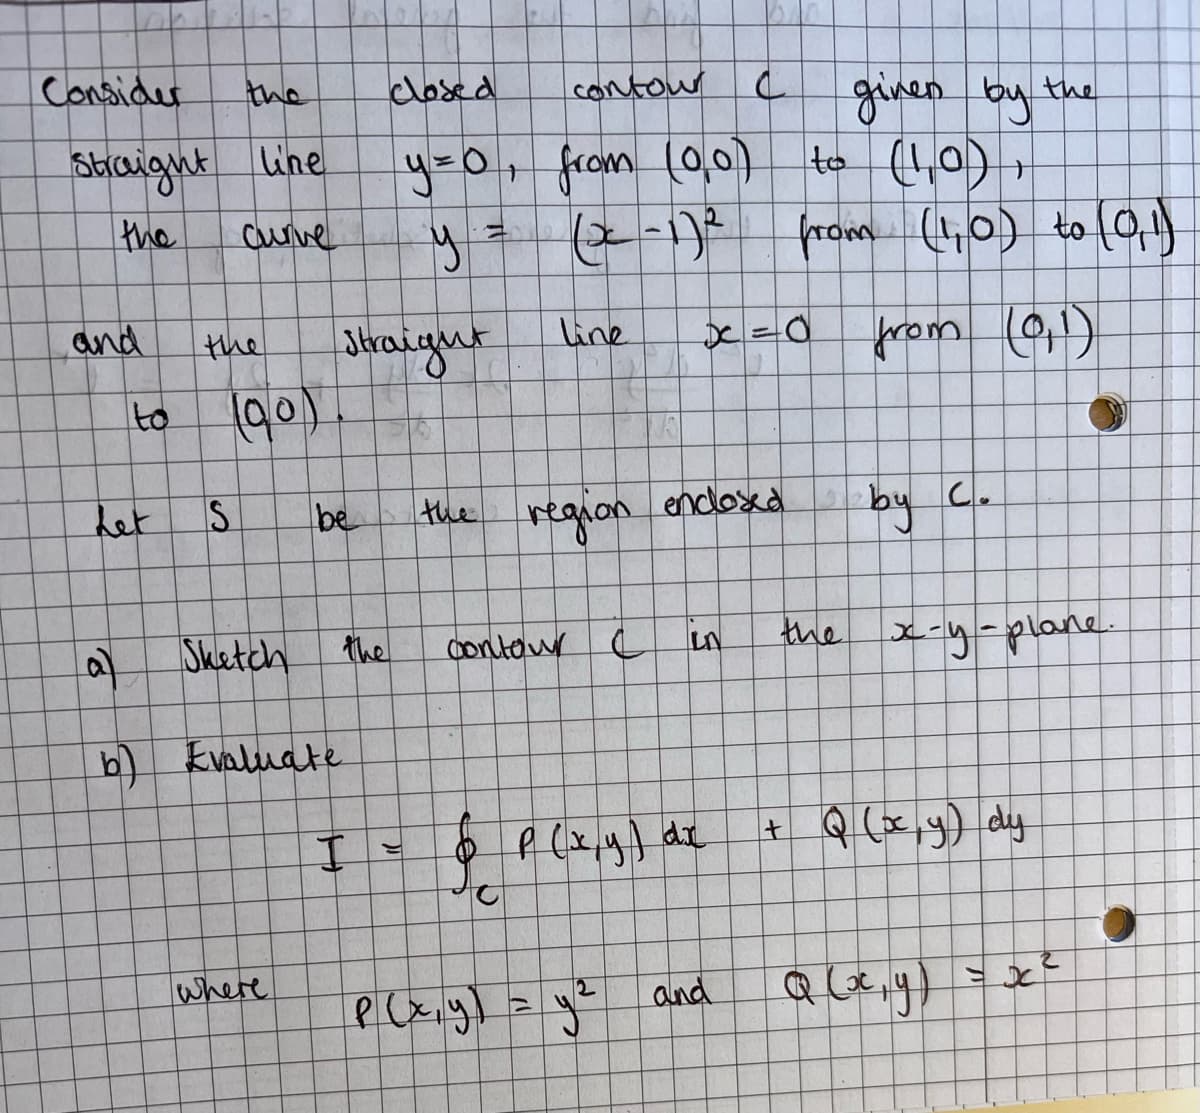 Consider the closed contour C given by the
straight line y=0, from (0,0) to (1,0),
the curve y = (x-1)² from (1,0) to (0,1)
and the straight line x=0 from (0,1)
to (0,0).
Let S be the region enclosed by C.
a) Sketch the contour C in the x-y-plane.
b) Evaluate
I = ∮_C P(x,y) dx + Q(x,y) dy
where P(x,y) = y² and Q(x,y) = x²